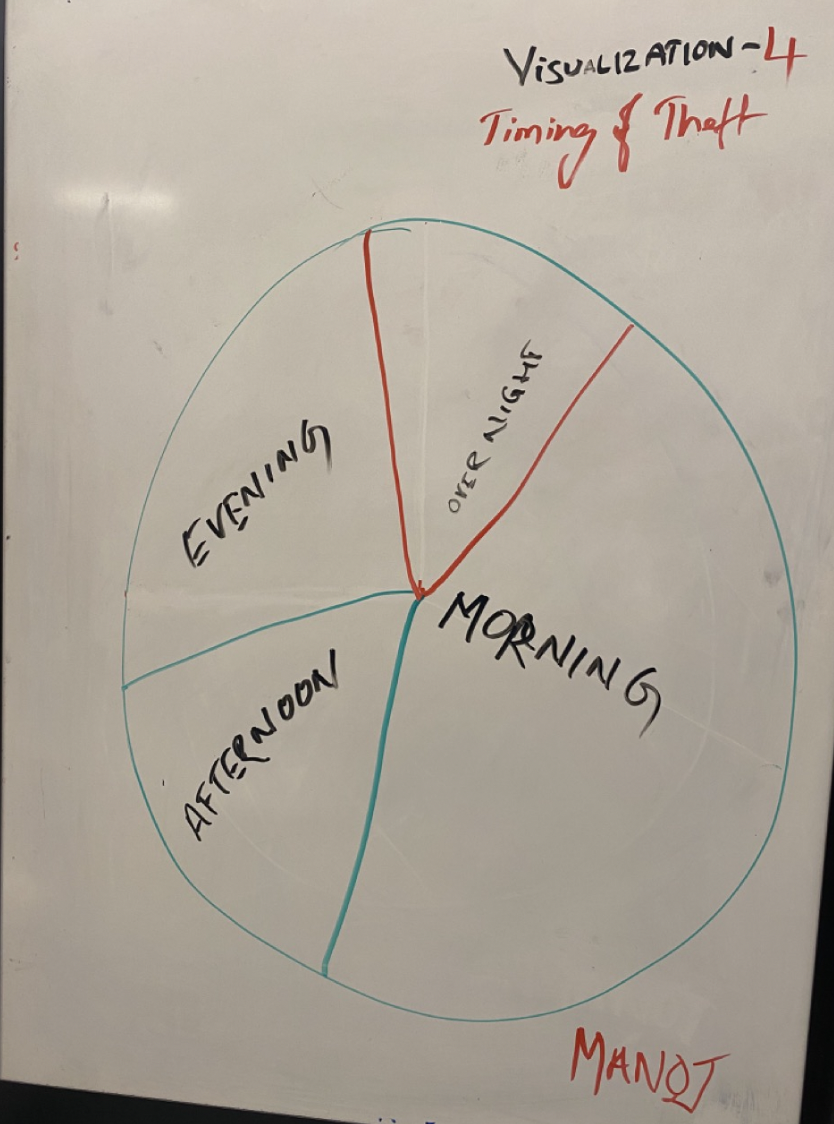 VISUALIZATION-4
Timing of Theft
OVER NIGHT
EVENING
MORNING
AFTERNOON
MANOJ